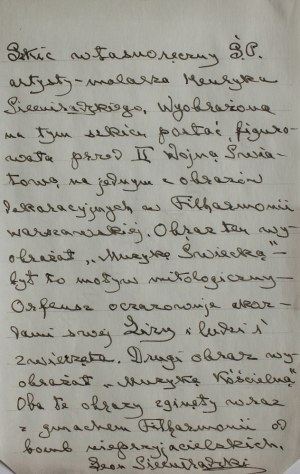 Szkic własnoręczny Ś.P.
artysty-malarza Henryka
Siemiradzkiego. Wyobrażona
na tym szkicu postać figuro-
wała przed II Wojną Świa-
tową na jednym z obrazów
dekoracyjnych w Filharmonii
warszawskiej. Obraz ten wy-
obrażał „Muzykę Świecką" —
był to motyw mitologiczny —
Orfeusz oczarowuje akor-
dami swej Liry i ludzi i
zwierzęta. Drugi obraz wy-
obrażał „Muzykę Kościelną".
Oba te obrazy zginęły wraz
z gmachem Filharmonii od
bomb nieprzyjacielskich.
Leon Siemiradzki